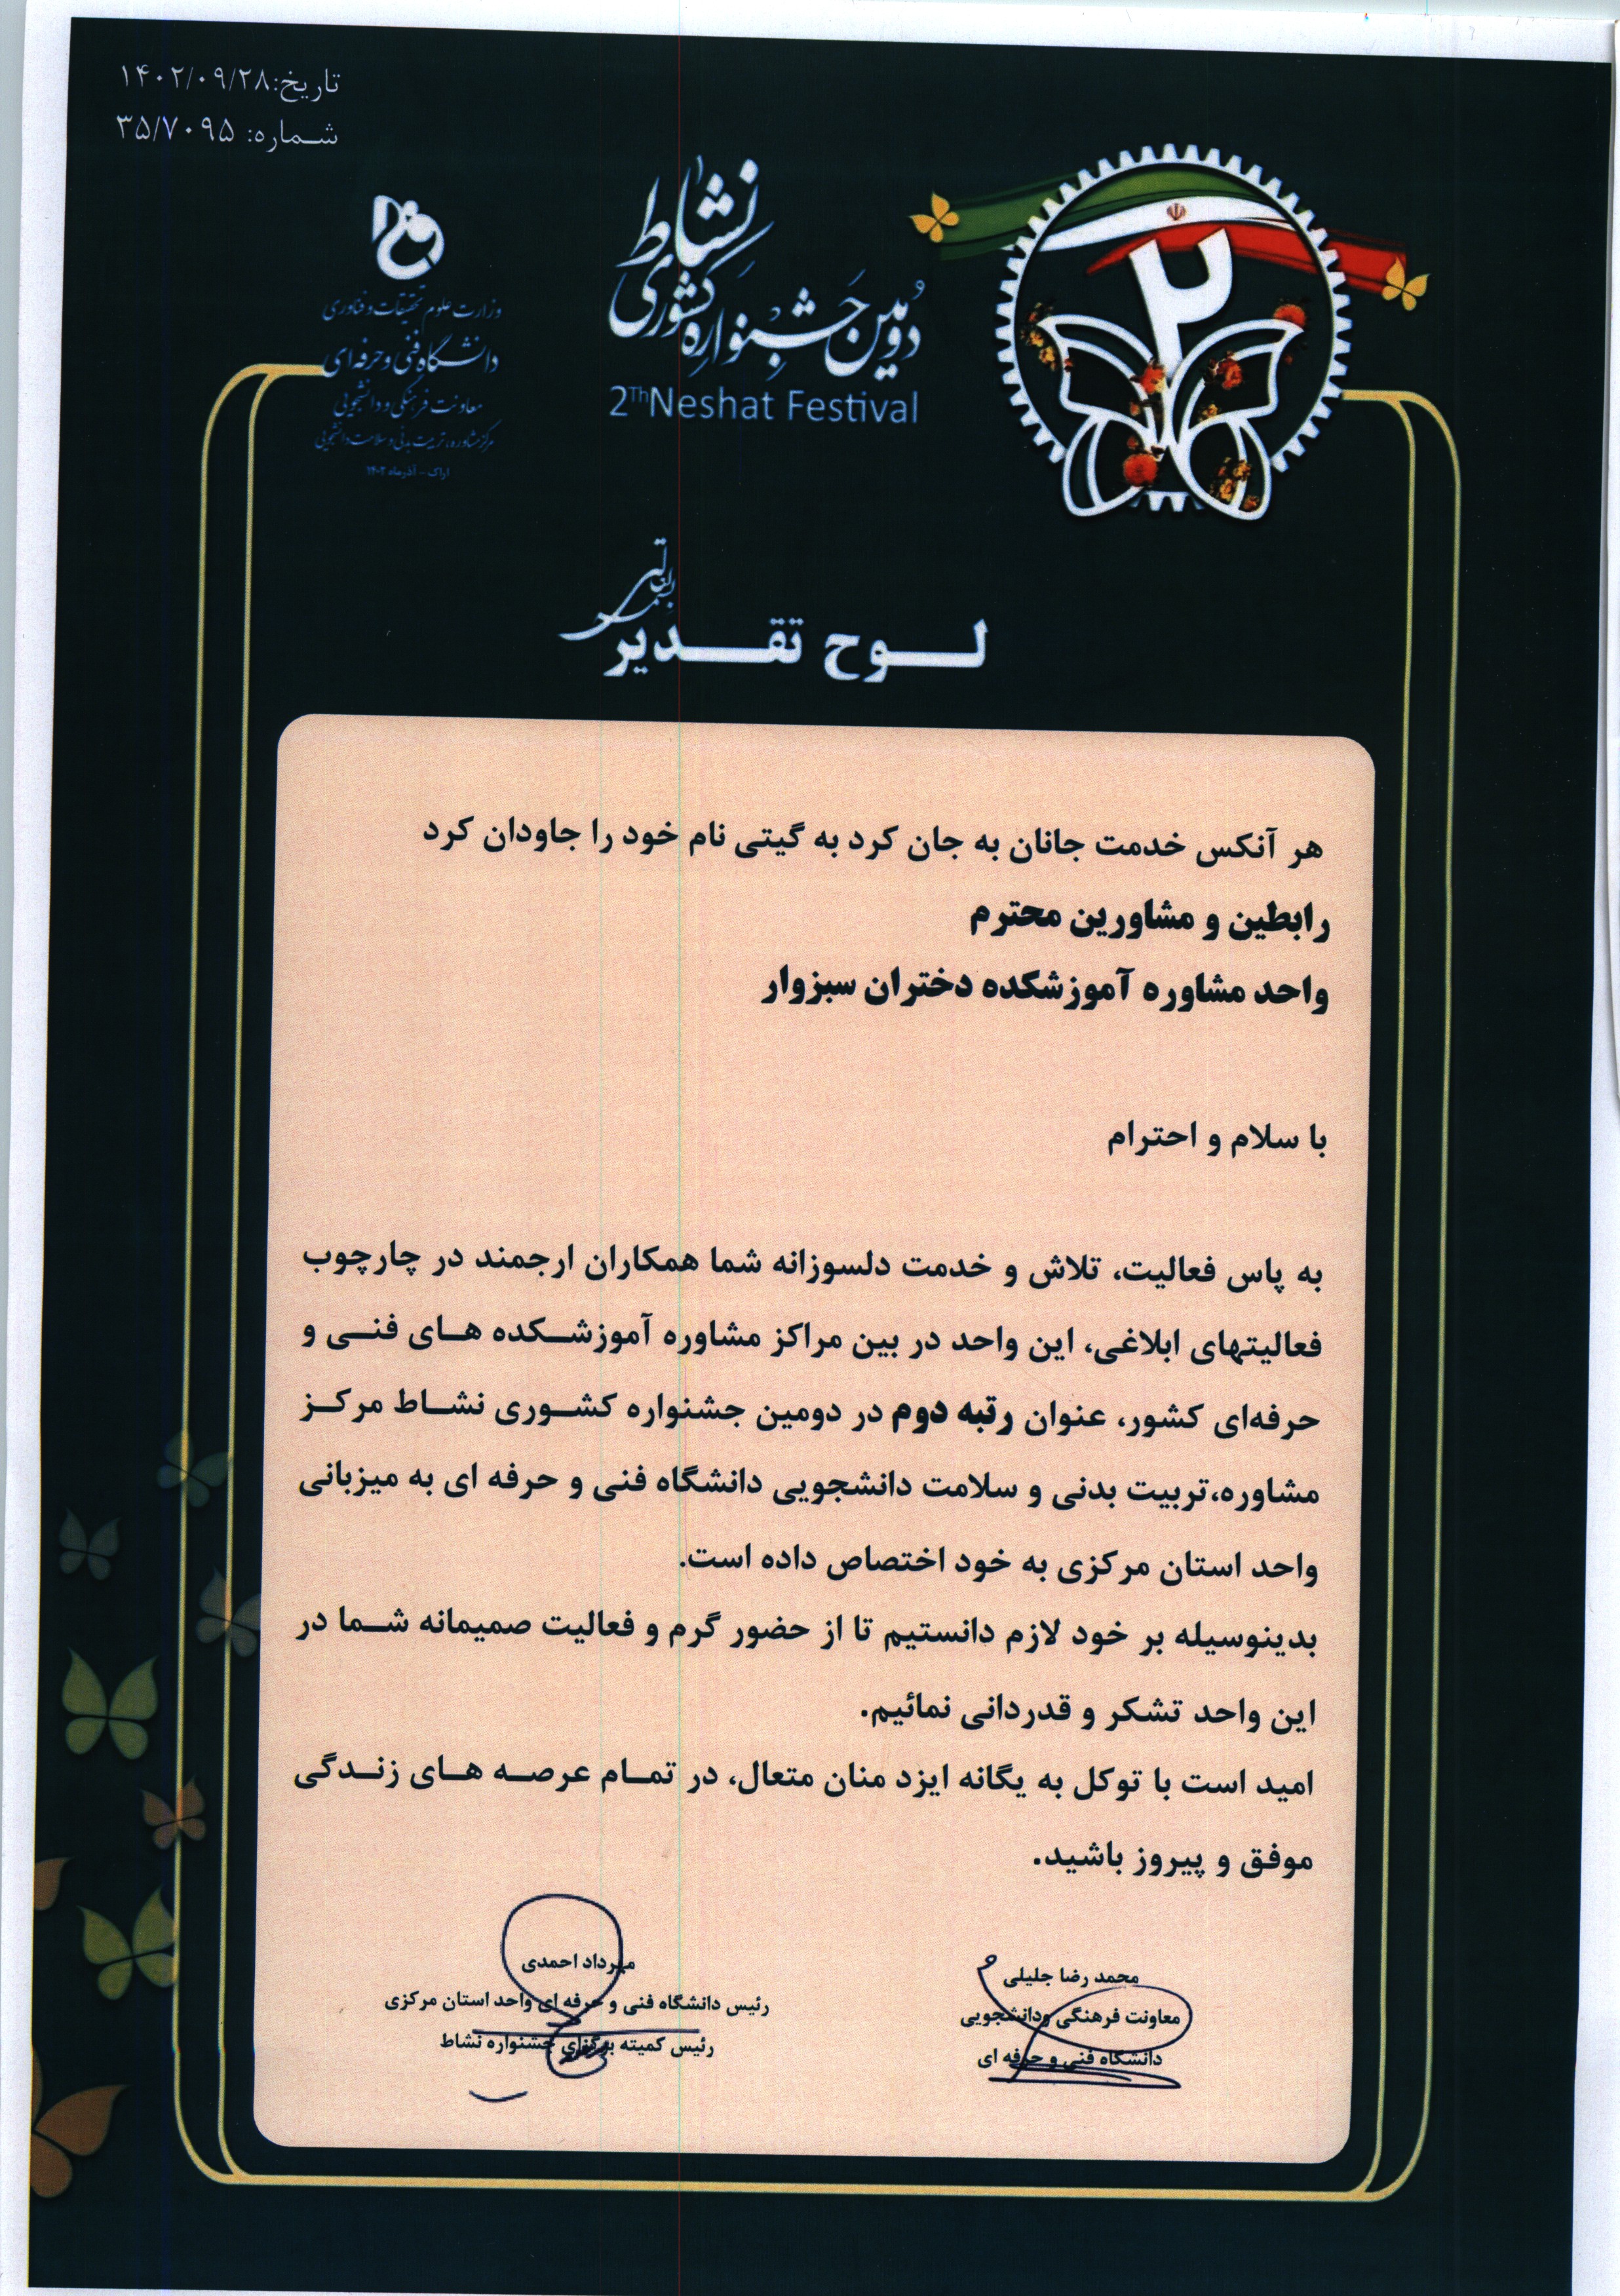 تاریخ:۱۴۰۲/۰۹/۲۸
شماره: ۳۵/۷۰۹۵
۲
دومین جشنواره کشوری نشاط
2Th Neshat Festival
وزارت علوم تحقیقات و فناوری
دانشگاه فنی و حرفه ای
معاونت فرهنگی و دانشجویی
مرکز مشاوره، تربیت بدنی و سلامت دانشجویی
اراک - آذرماه ۱۴۰۲
بسمه تعالی
لوح تقدیر
هر آنکس خدمت جانان به جان کرد به گیتی نام خود را جاودان کرد
رابطین و مشاورین محترم
واحد مشاوره آموزشکده دختران سبزوار
با سلام و احترام
به پاس فعالیت، تلاش و خدمت دلسوزانه شما همکاران ارجمند در چارچوب
فعالیتهای ابلاغی، این واحد در بین مراکز مشاوره آموزشکده های فنی و
حرفه‌ای کشور، عنوان رتبه دوم در دومین جشنواره کشوری نشاط مرکز
مشاوره،تربیت بدنی و سلامت دانشجویی دانشگاه فنی و حرفه ای به میزبانی
واحد استان مرکزی به خود اختصاص داده است.
بدینوسیله بر خود لازم دانستیم تا از حضور گرم و فعالیت صمیمانه شما در
این واحد تشکر و قدردانی نمائیم.
امید است با توکل به یگانه ایزد منان متعال، در تمام عرصه های زندگی
موفق و پیروز باشید.
محمد رضا جلیلی
معاونت فرهنگی ودانشجویی
دانشگاه فنی و حرفه ای
مهرداد احمدی
رئیس دانشگاه فنی و حرفه ای واحد استان مرکزی
رئیس کمیته برگزای جشنواره نشاط